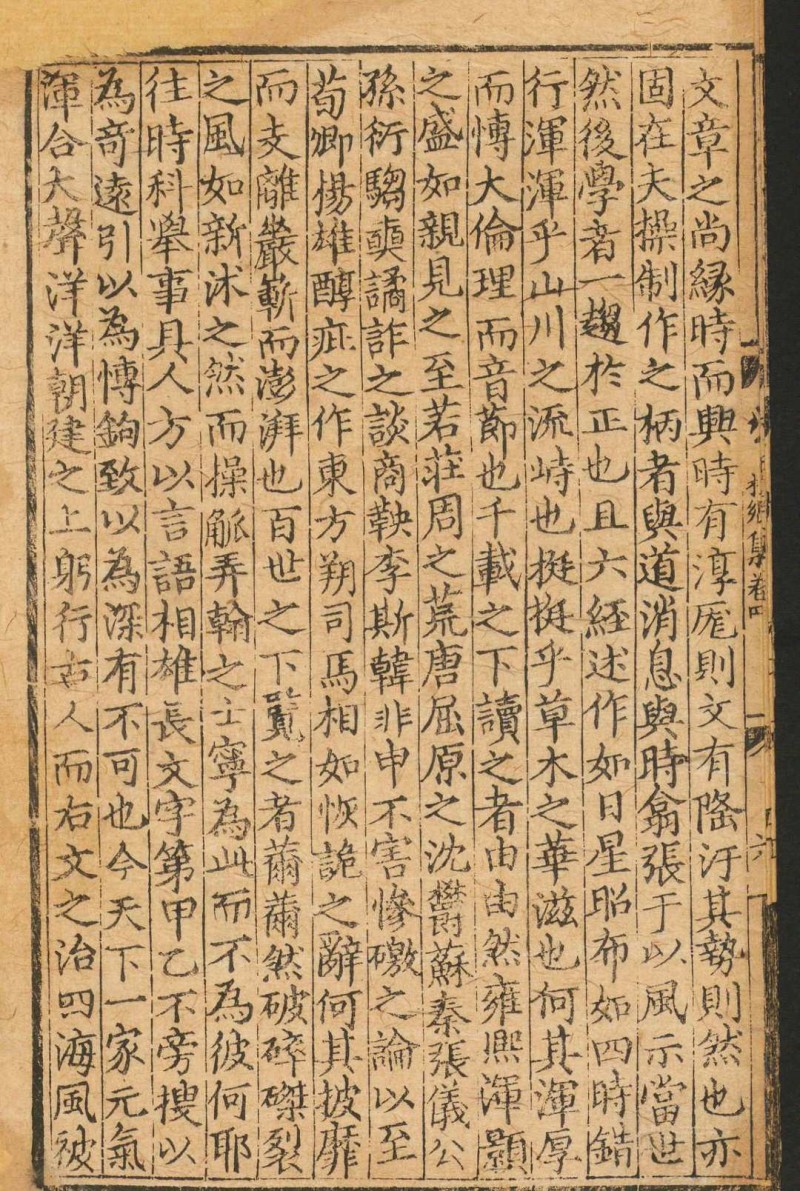 文章之尚緣時而興時有淳厖則文有隆汙其勢則然也亦
固在夫操制作之柄者與道消息與時翕張于以風示當世
然後學者一趨於正也且六經述作如日星昭布如四時錯
行渾渾乎山川之流峙也挺挺乎草木之華滋也何其渾厚
而博大倫理而音節也千載之下讀之者由由然雍熙渾顥
之盛如親見之至若莊周之荒唐屈原之沈欝蘇秦張儀公
孫衍騶奭譎詐之談商鞅李斯韓非申不害慘礉之論以至
荀卿揚雄醇疵之作東方朔司馬相如恢詭之辭何其披靡
而支離巖嶄而澎湃也百世之下覽之者薾薾然破碎磔裂
之風如新沐之然而操觚弄翰之士寧為此而不為彼何耶
往時科舉事具人方以言語相雄長文字第甲乙不旁搜以
為奇遠引以為博鉤致以為深有不可也今天下一家元氣
渾合大聲洋洋朝建之上躬行古人而右文之治四海風被
卷四
六